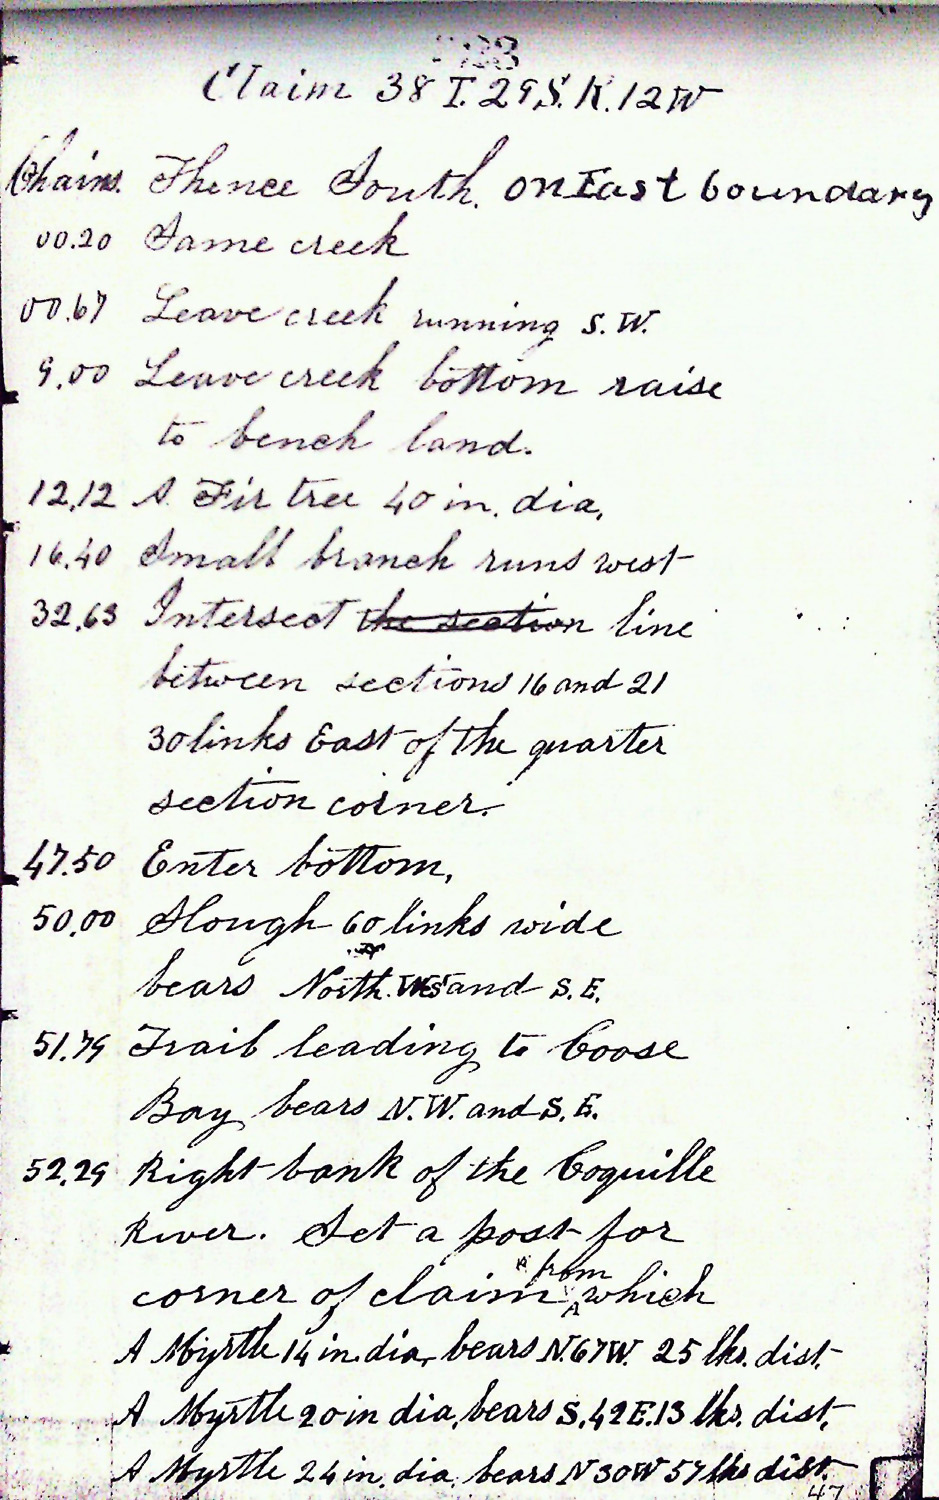 Claim 38 T.29S.R.12W
Chains. Thence South. on East boundary
00.20 Same creek
00.67 Leave creek running S.W.
9.00 Leave creek bottom raise
to bench land.
12.12 A Fir tree 40 in. dia,
16.40 Small branch runs west
32.63 Intersect the section line
between sections 16 and 21
30 links East of the quarter
section corner.
47.50 Enter bottom,
50.00 Slough 60 links wide
bears North and S.E.
51.79 Trail leading to Coose
Bay bears N.W. and S.E.
52.29 Right bank of the Coquille
River. Set a post for
corner of claim from which
A Myrtle 14 in. dia, bears N.67W. 25 lks. dist.
A Myrtle 20 in dia, bears S.42E.13 lks. dist.
A Myrtle 24 in. dia. bears N30W 57 lks dist.
47